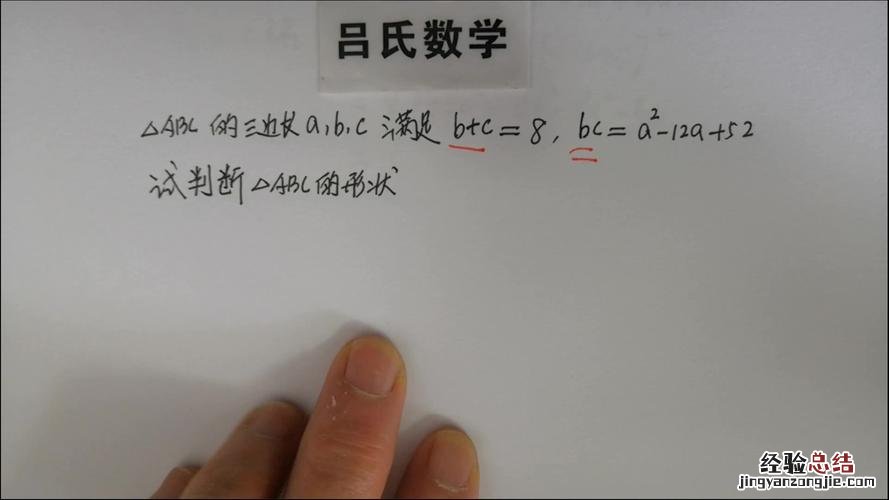 吕氏数学
△ABC的三边长a,b,c满足b+c=8,bc=a²-12a+52
试判断△ABC的形状
经验总结
jingyanzongjie.com